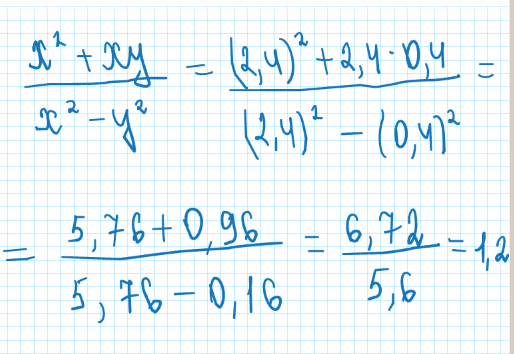 (x² + xy)/(x² − y²) = ((2,4)² + 2,4 · 0,4)/((2,4)² − (0,4)²) =
= (5,76 + 0,96)/(5,76 − 0,16) = 6,72/5,6 = 1,2